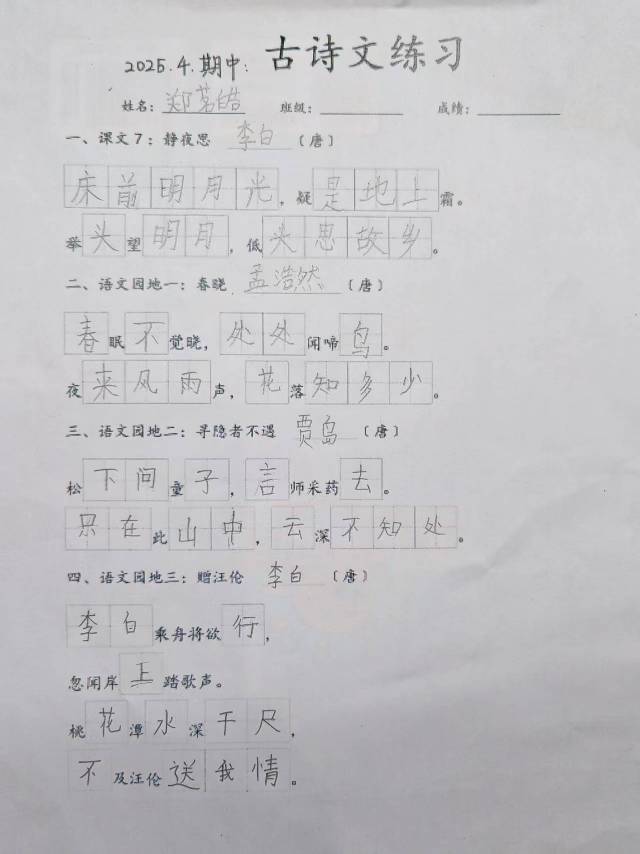 2025.4.期中: 古诗文练习
姓名: 郑茗皓 班级: 成绩:
一、课文7: 静夜思 李白 (唐)
床前明月光, 疑是地上霜。
举头望明月, 低头思故乡。
二、语文园地一: 春晓 孟浩然 (唐)
春眠不觉晓, 处处闻啼鸟。
夜来风雨声, 花落知多少。
三、语文园地二: 寻隐者不遇 贾岛 (唐)
松下问童子, 言师采药去。
只在此山中, 云深不知处。
四、语文园地三: 赠汪伦 李白 (唐)
李白乘舟将欲行,
忽闻岸上踏歌声。
桃花潭水深千尺,
不及汪伦送我情。